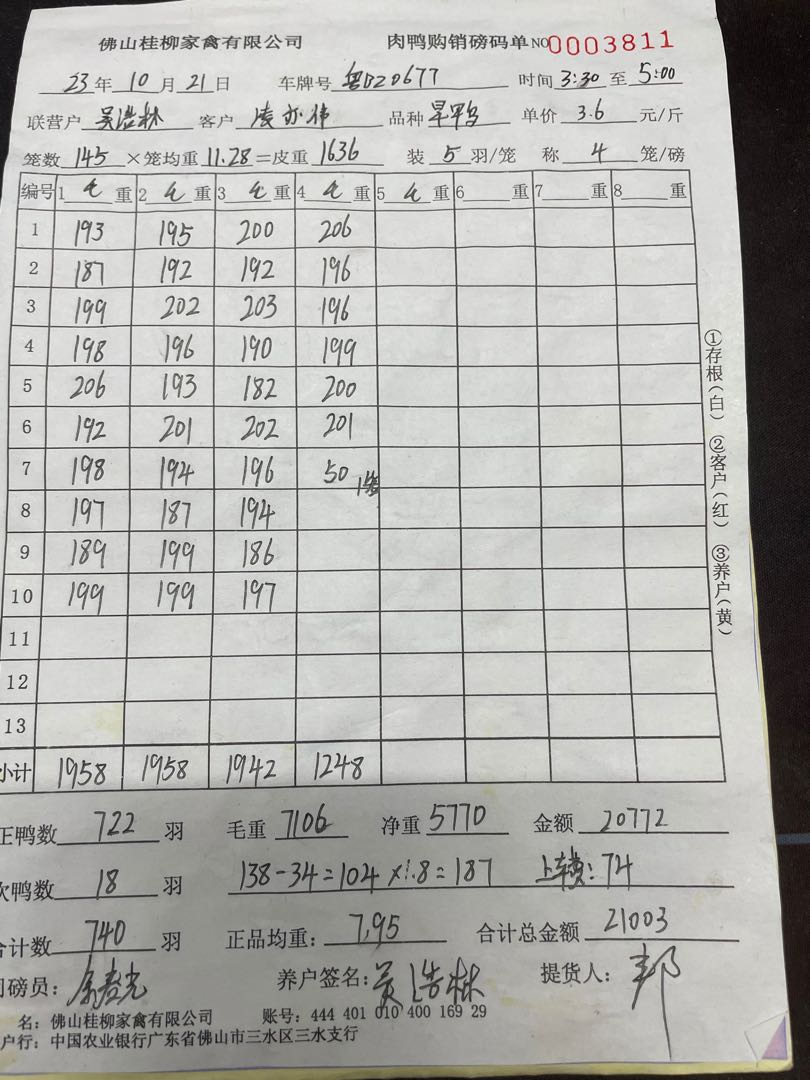 佛山桂柳家禽有限公司 肉鸭购销磅码单 NO 0003811
23年10月21日 车牌号 粤DZ0677 时间 3:30 至 5:00
联营户 吴浩林 客户 凌亦伟 品种 旱鸭 单价 3.6 元/斤
笼数 145 ×笼均重 11.28 =皮重 1636 装 5 羽/笼 称 4 笼/磅
编号 1 毛 重 2 毛 重 3 毛 重 4 毛 重 5 毛 重 6 重 7 重 8 重
1 193 195 200 206
2 187 192 192 196
3 199 202 203 196
4 198 196 190 199
5 206 193 182 200
6 192 201 202 201
7 198 194 196 50
8 197 187 194
9 189 199 186
10 199 199 197
11
12
13
小计 1958 1958 1942 1248
正鸭数 722 羽 毛重 7106 净重 5770 金额 20772
次鸭数 18 羽 138-34=104×1.8=187 上车费:74
合计数 740 羽 正品均重: 7.95 合计总金额 21003
司磅员: 养户签名: 吴浩林 提货人: 邦
名: 佛山桂柳家禽有限公司 账号: 444 401 010 400 169 29
户行: 中国农业银行广东省佛山市三水区三水支行
①存根(白) ②客户(红) ③养户(黄)